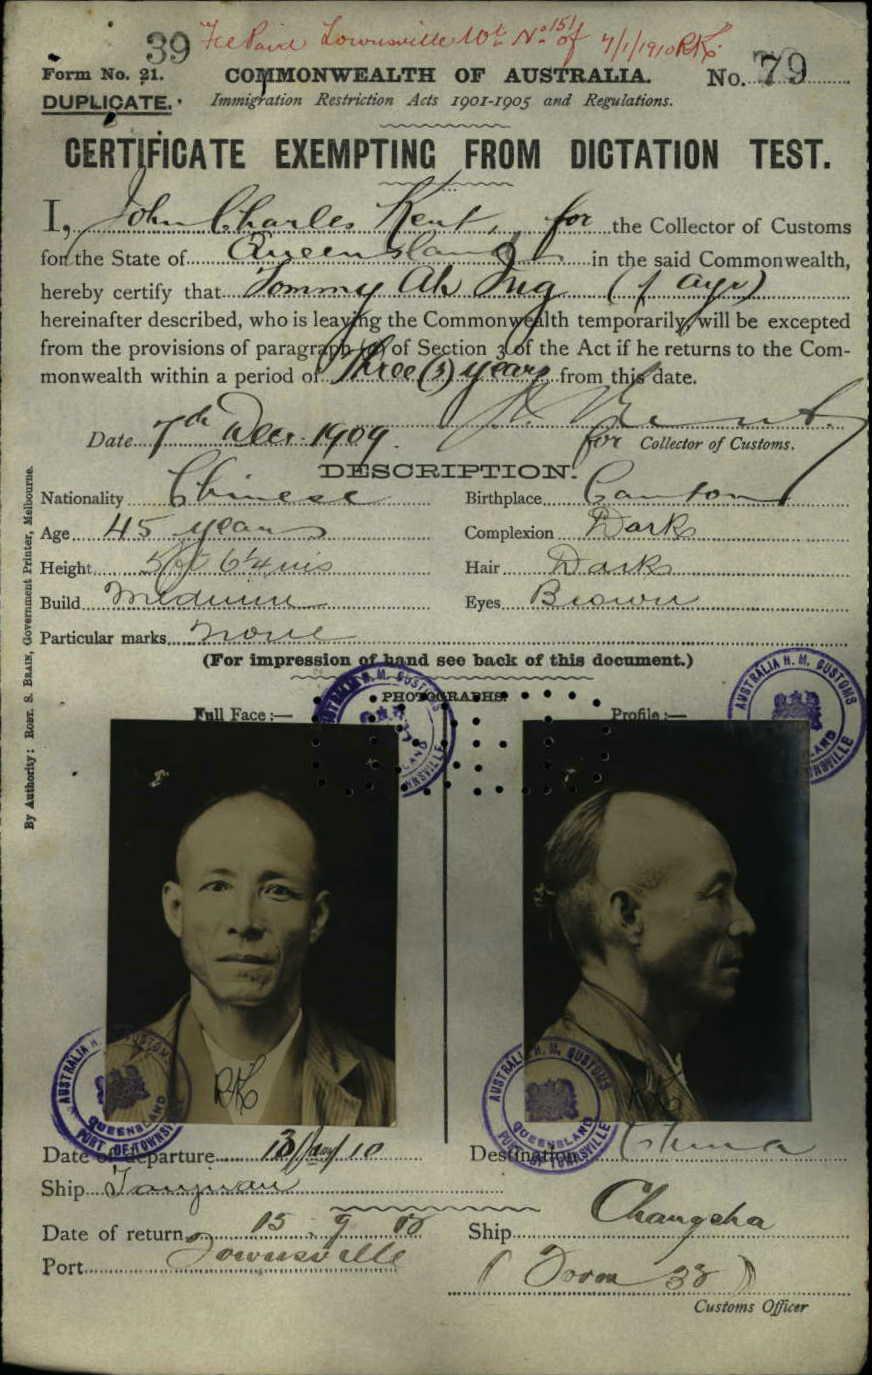 39 Fee Paid Townsville Wt. No. 151 of 7/1/1910 RK.
Form No. 21. COMMONWEALTH OF AUSTRALIA. No. 79
DUPLICATE. Immigration Restriction Acts 1901-1905 and Regulations.
CERTIFICATE EXEMPTING FROM DICTATION TEST.
I, John Charles Kent, for the Collector of Customs
for the State of Queensland in the said Commonwealth,
hereby certify that Tommy Ah (of Ayr)
hereinafter described, who is leaving the Commonwealth temporarily, will be excepted
from the provisions of paragraph (a) of Section 3 of the Act if he returns to the Com-
monwealth within a period of three (3) years from this date.
Date 7th Dec. 1909. J.C. Kent.
for Collector of Customs.
DESCRIPTION.
Nationality Chinese Birthplace Canton
Age 45 years Complexion Dark
Height 5 ft 6¼ ins Hair Dark
Build Medium Eyes Brown
Particular marks None
(For impression of hand see back of this document.)
PHOTOGRAPHS.
Full Face :— Profile :—
AUSTRALIA H. M. CUSTOMS
QUEENSLAND
PORT OF TOWNSVILLE
AUSTRALIA H. M. CUSTOMS
QUEENSLAND
PORT OF TOWNSVILLE
RK RK
AUSTRALIA H. M. CUSTOMS
QUEENSLAND
PORT OF TOWNSVILLE
AUSTRALIA H. M. CUSTOMS
QUEENSLAND
PORT OF TOWNSVILLE
Date of Departure 13/Jany/10 Destination China
Ship Taiyuan
Date of return 15. 9. Ship Changsha
Port Townsville
(Form 32)
Customs Officer
By Authority: ROBT. S. BRAIN, Government Printer, Melbourne.